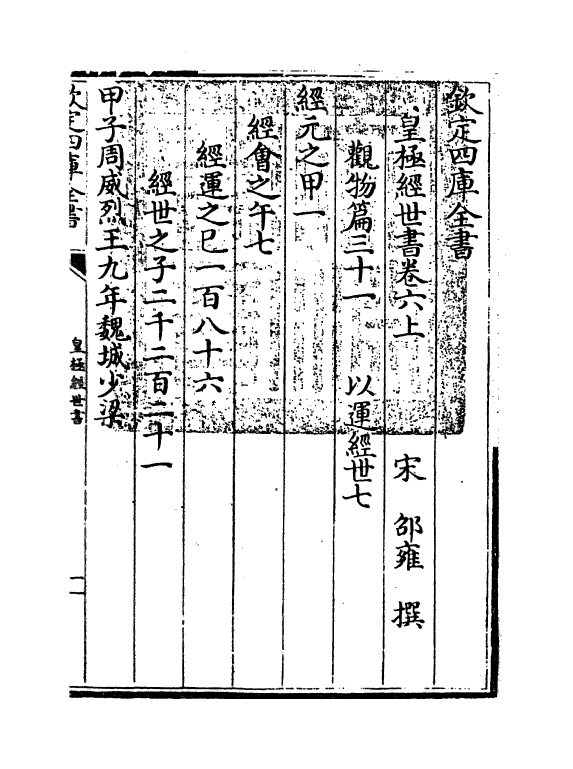 欽定四庫全書
皇極經世書卷六上　宋　邵雍　撰
觀物篇三十一　以運經世七
經元之甲一
經會之午七
經運之巳一百八十六
經世之子二千二百二十一
甲子周威烈王九年魏城少梁
欽定四庫全書
皇極經世書
一